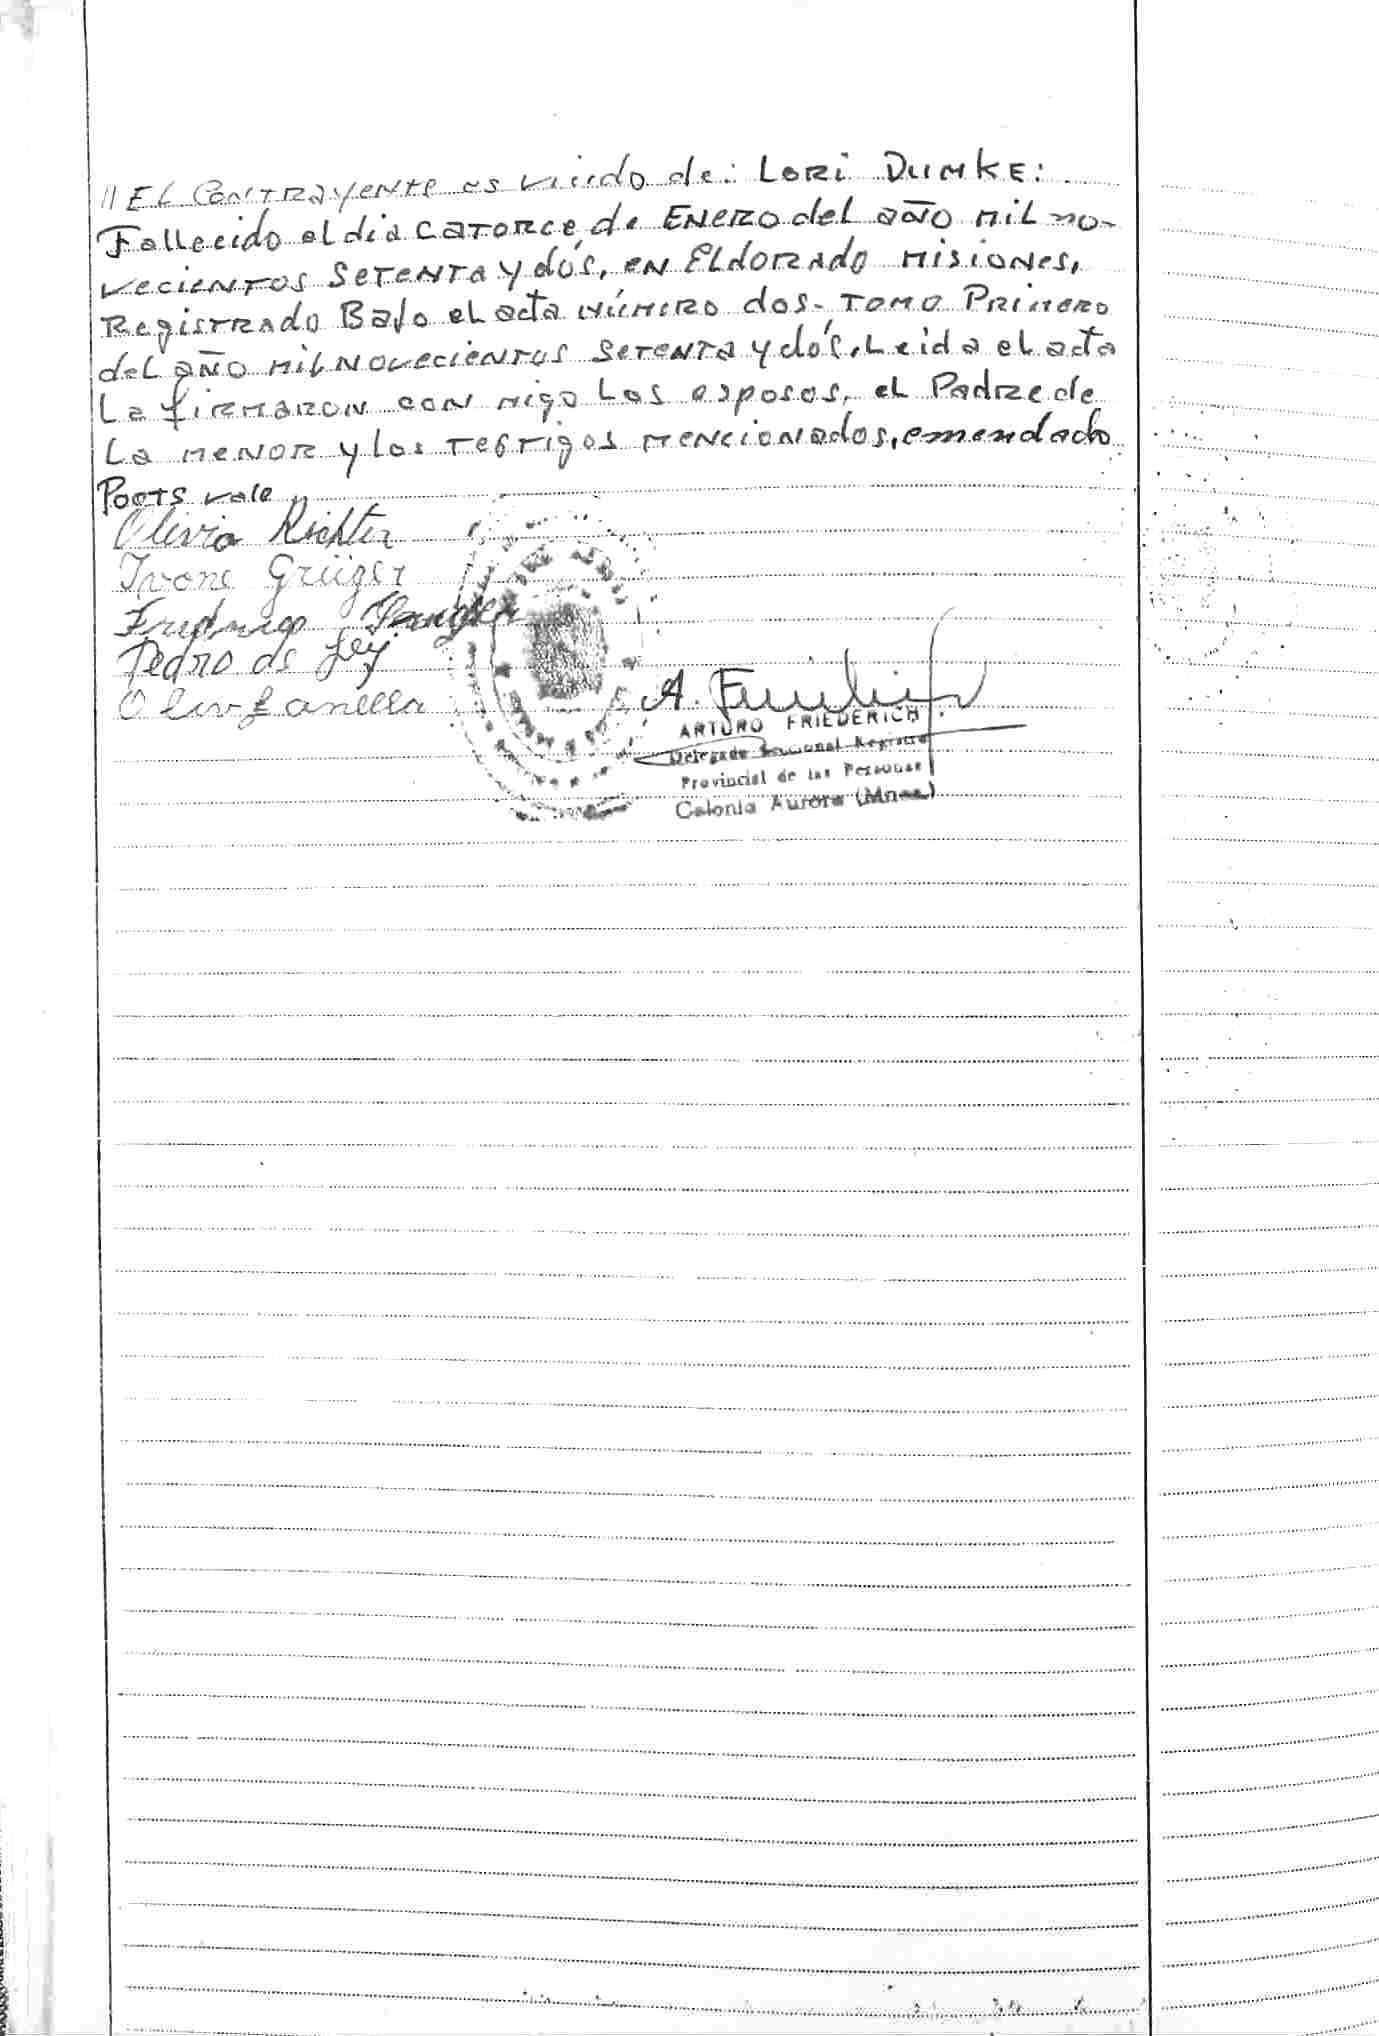 // EL CONTRAYENTE es viudo de: LORI DUMKE:
Fallecido el dia CATORCE de ENERO del año MIL NO-
VECIENTOS SETENTA y dós, EN ELDORADO MISIONES,
REGISTRADO BAJO el acta NÚMERO DOS- TOMO PRIMERO
del año MIL NOVECIENTOS SETENTA y dós, Leida el acta
La firmaron con migo Los esposos, el Padre de
La MENOR y los TESTIGOS MENCIONADOS, emendado
Poots vale
Olivia Richter
Ivone Grüger
Pedro de
A.
ARTURO FRIEDERICH
Delegado Seccional Registro
Provincial de las Personas
Colonia Aurora (Mnes.)